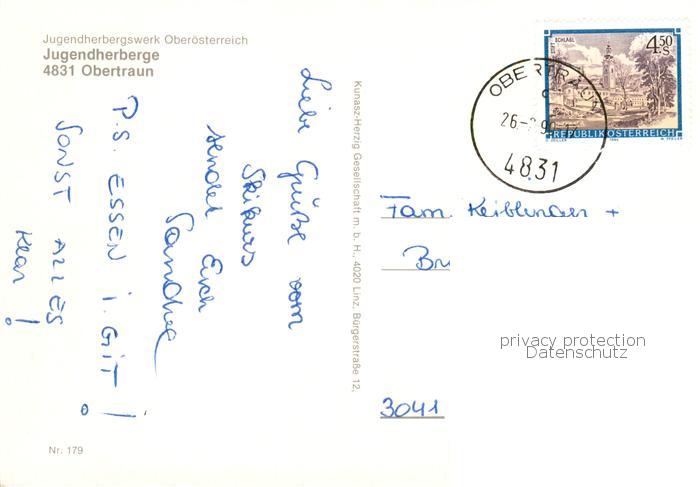 Jugendherbergswerk Oberösterreich
Jugendherberge
4831 Obertraun
Liebe Grüße vom
Skikurs
sendet Euch
P.S. ESSEN i. GIT!
SONST ALLES
Klar!
Nr. 179
Kunasz-Herzig Gesellschaft m. b. H., 4020 Linz, Bürgerstraße 12.
STIFT SCHLÄGL
4.50
S
REPUBLIK ÖSTERREICH
OBERTRAUN
4831
Fam. +
3041
privacy protection
Datenschutz